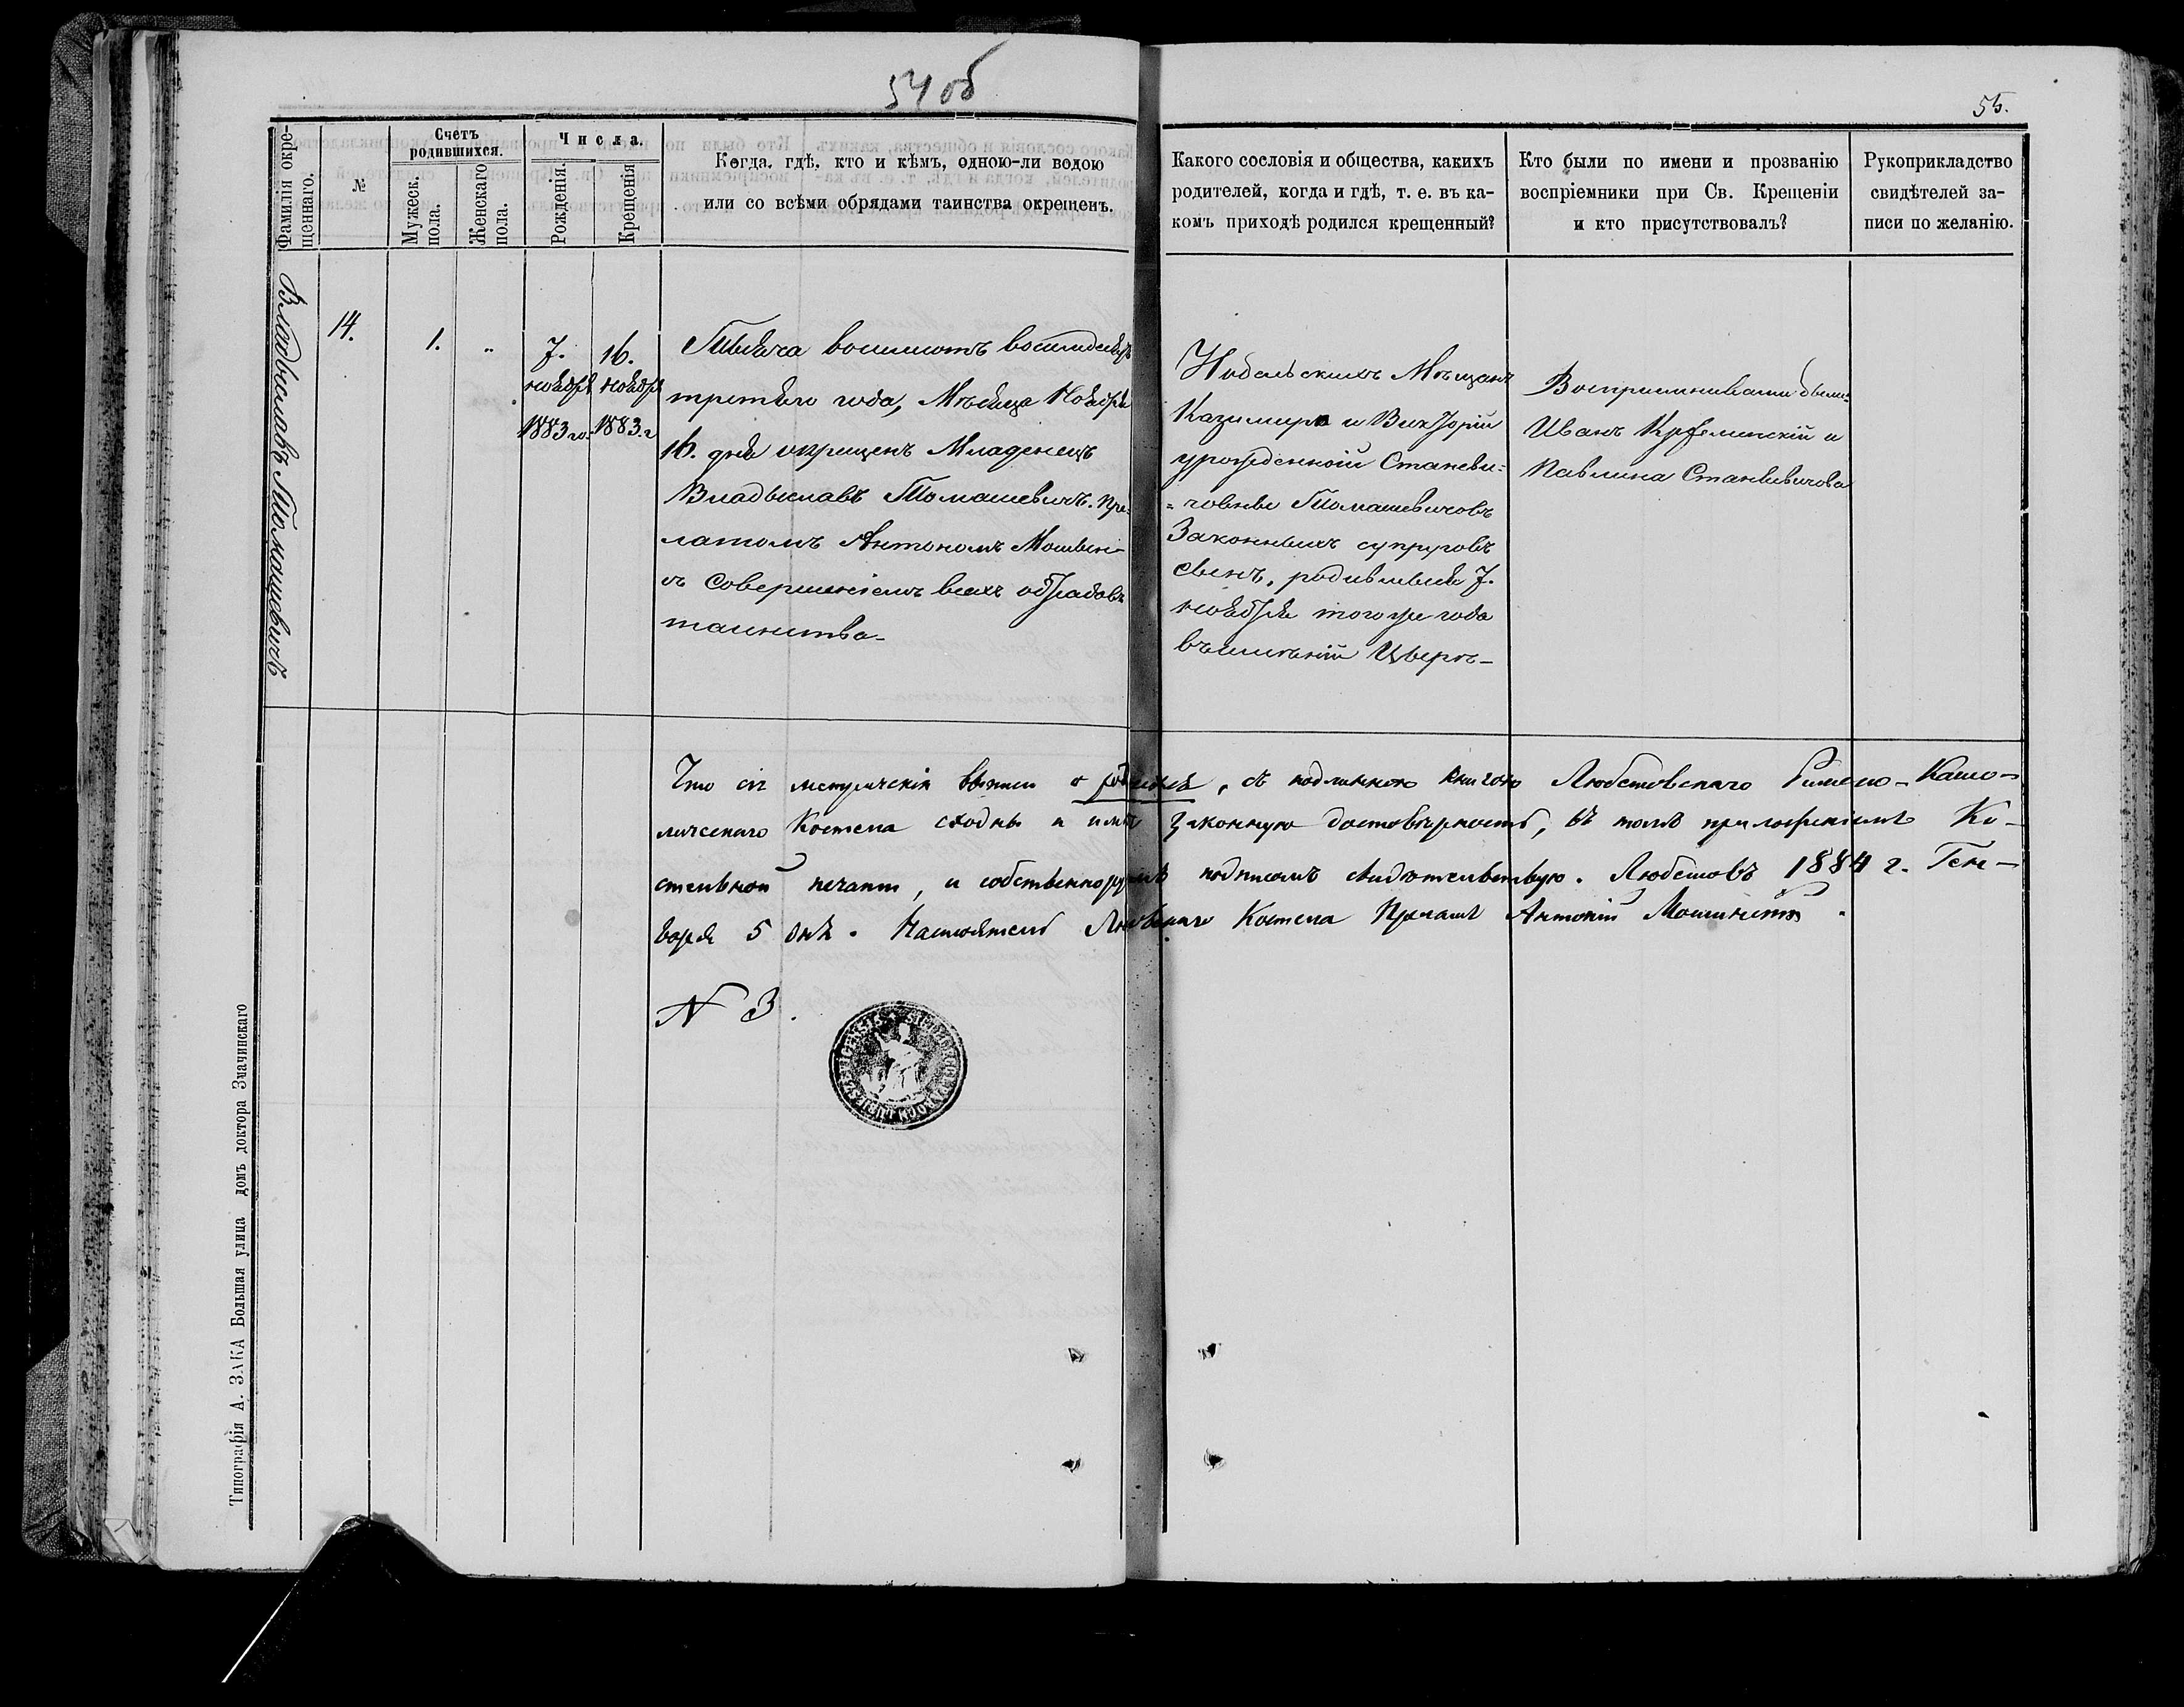 54 об
55.
Фамилія окре-
щеннаго.
№
Счетъ
родившихся.
Мужеск.
пола.
Женскаго
пола.
Числа.
Рожденія.
Крещенія
Когда, гдѣ, кто и кѣмъ, одною-ли водою
или со всѣми обрядами таинства окрещенъ.
Какого сословія и общества, какихъ
родителей, когда и гдѣ, т. е. въ ка-
комъ приходѣ родился крещенный?
Кто были по имени и прозванію
воспріемники при Св. Крещеніи
и кто присутствовалъ?
Рукоприкладство
свидѣтелей за-
писи по желанію.
Владыславъ Томашевичъ
14.
1.
"
7.
ноября
1883 го.
16.
ноября
1883. г
Тысяча восимсотъ восимдесятъ
третяго года, Мѣсяца Ноября
16. дня окрищенъ Младенецъ
Владыславъ Томашевичъ. Пре-
латомъ Антономъ
съ Совершеніемъ всѣхъ обрядовъ
таинства-
Нобельскихъ Мѣщанъ
Казимира и Викторіи
урожденной Станеви-
=човны Томашевичовъ
Законныхъ супруговъ
сынъ, родившыся 7.
ноября того же года
въ имѣніи
Восприемниками были:
Иванъ и
Павлина Станкевичова
Что сіи метрическія выписи о , съ подлинною книгою Любешовскаго Римско-Като-
лическаго Костела сходны и имѣютъ законную достовѣрность, въ томъ приложеніемъ Ко-
стельной печати, и собственноручнымъ подписомъ свидѣтельствую. Любешовъ 1884 г. Ген-
варя 5 дня. Настоятель Костела Прелатъ Антоній
N 3.
Типографія А. ЗАКА Большая улица домъ доктора Значинскаго